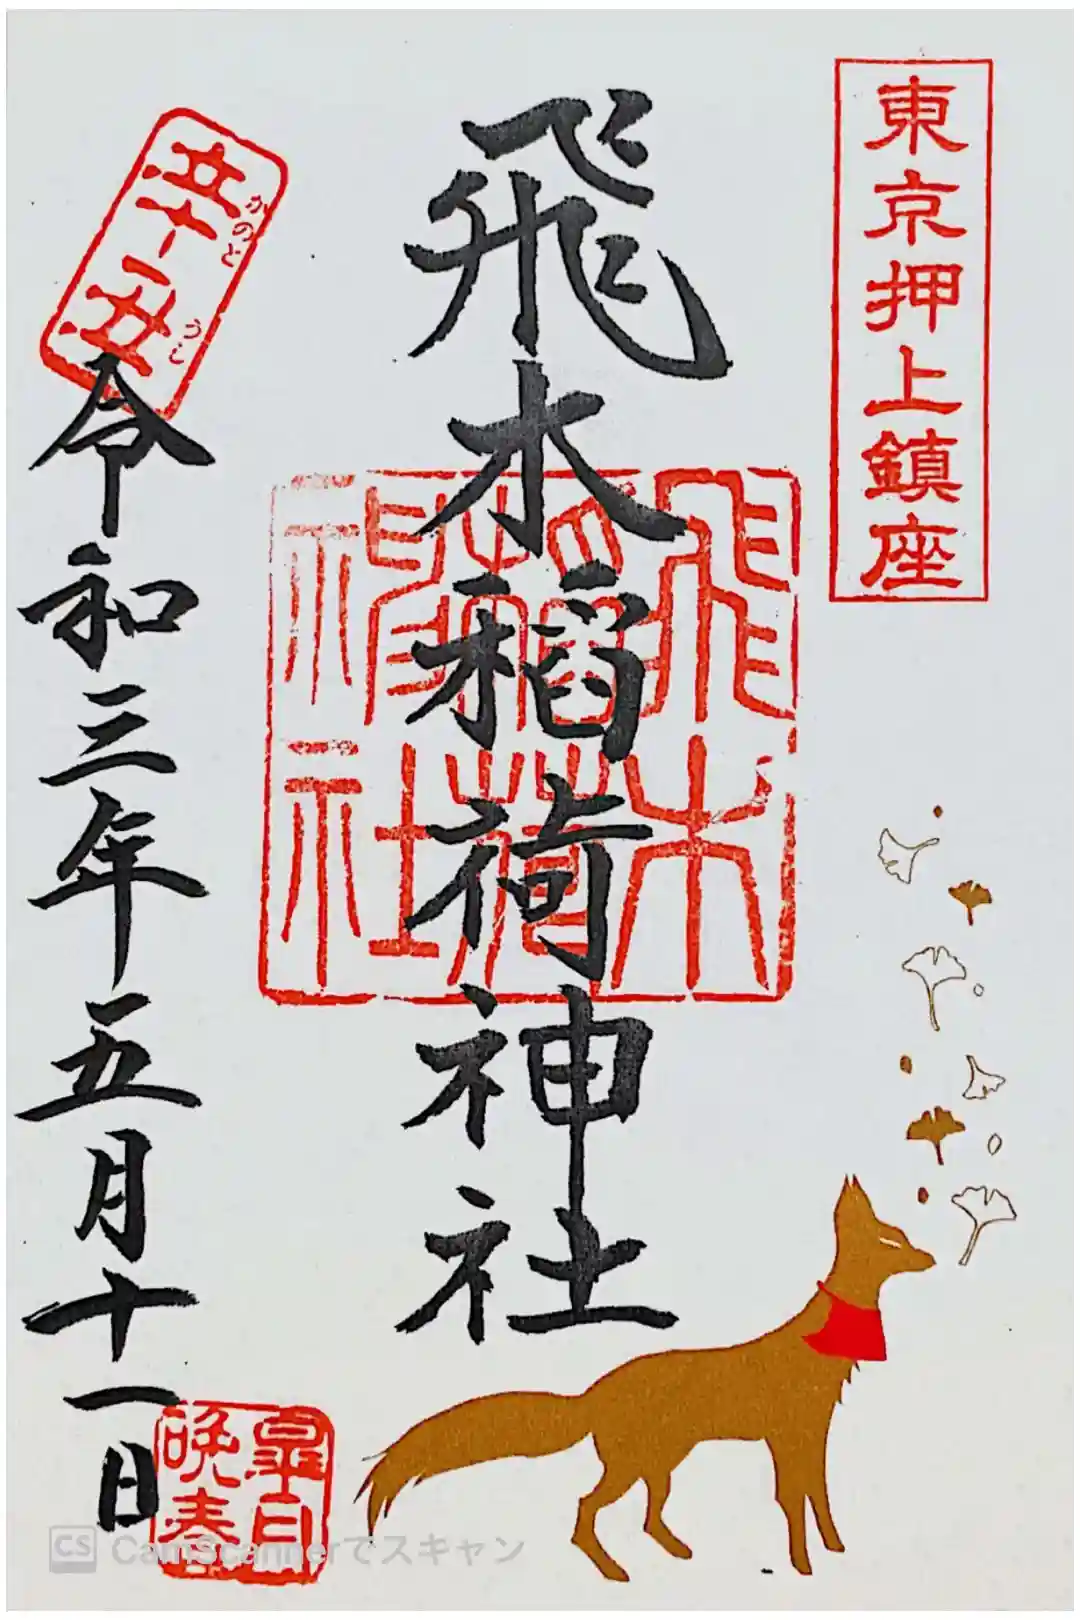 東京押上鎮座
飛木稲荷神社
飛木
稲荷
神社
辛丑
かのと
うし
令和三年五月十一日
皐月
晩春
CS CamScannerでスキャン